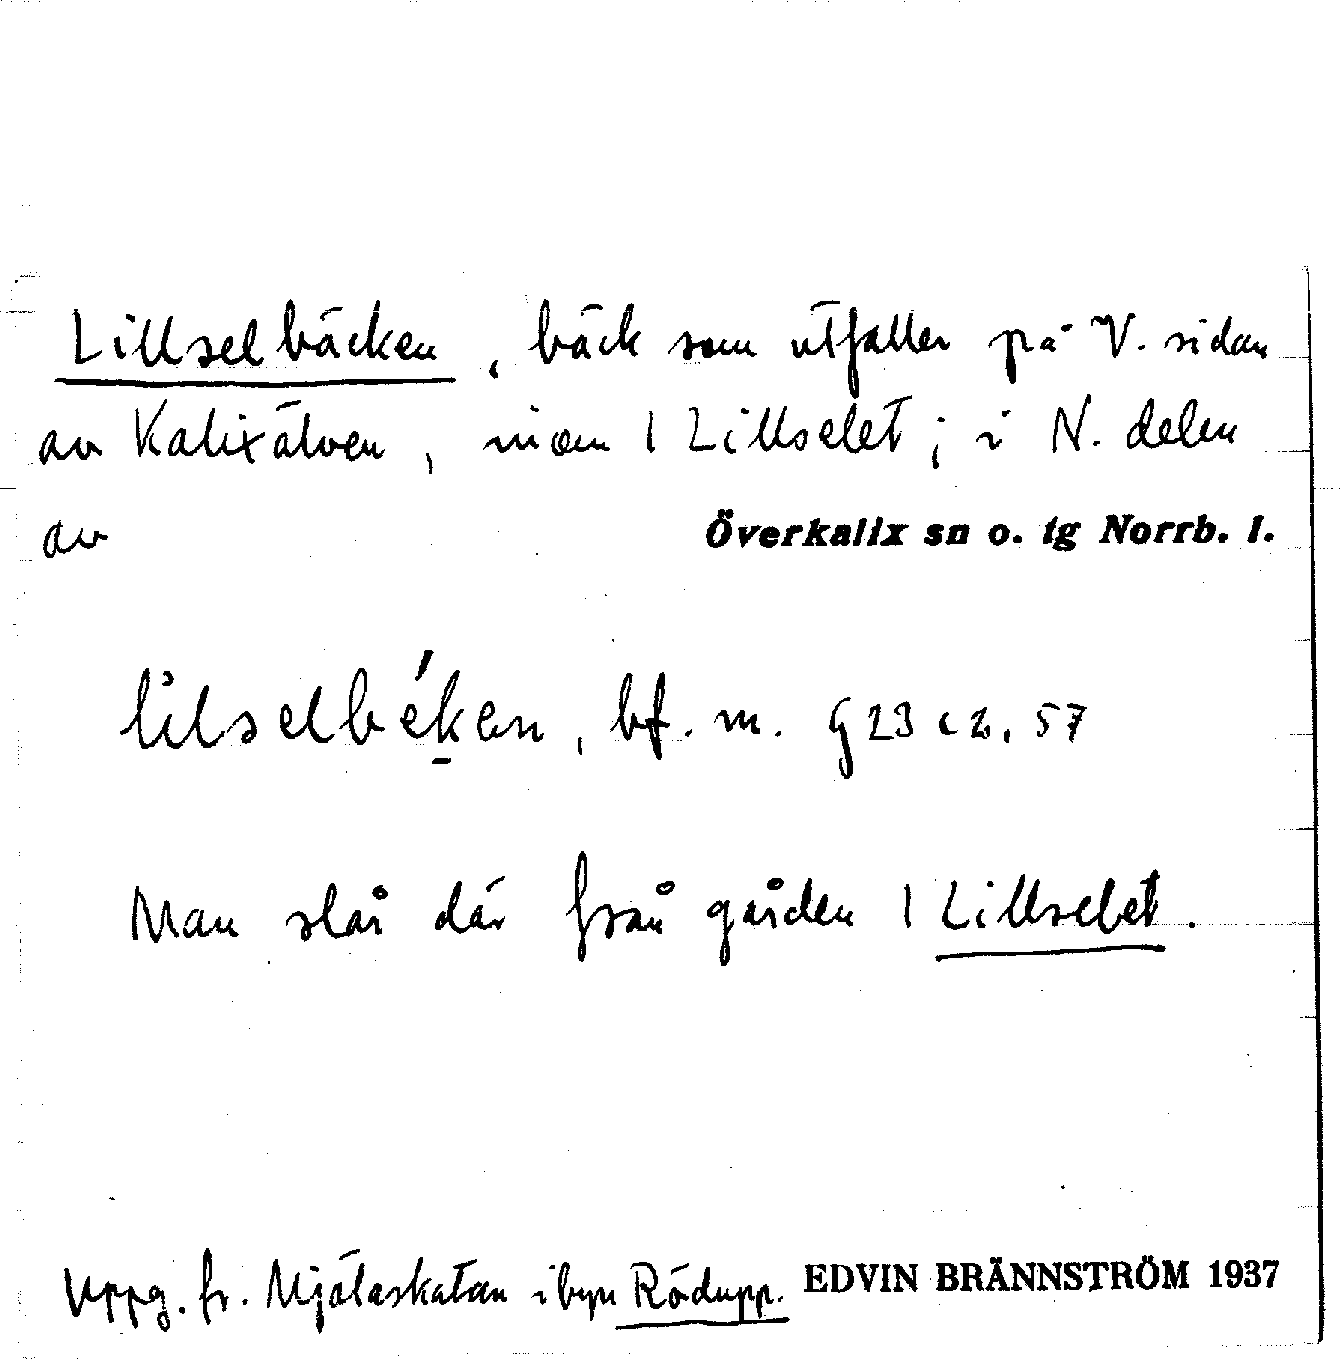 Lillselbäcken, bäck som utfaller på V. sidan
av Kalixälven, inom 1 Lillselet; i N. delen
av Överkalix sn o. tg Norrb. l.
lilselbéken, bf. m. G 23 c 2, 57
Man slår där från gården 1 Lillselet.
Uppg. fr. Mjölaskatan i byn Rödupp. EDVIN BRÄNNSTRÖM 1937